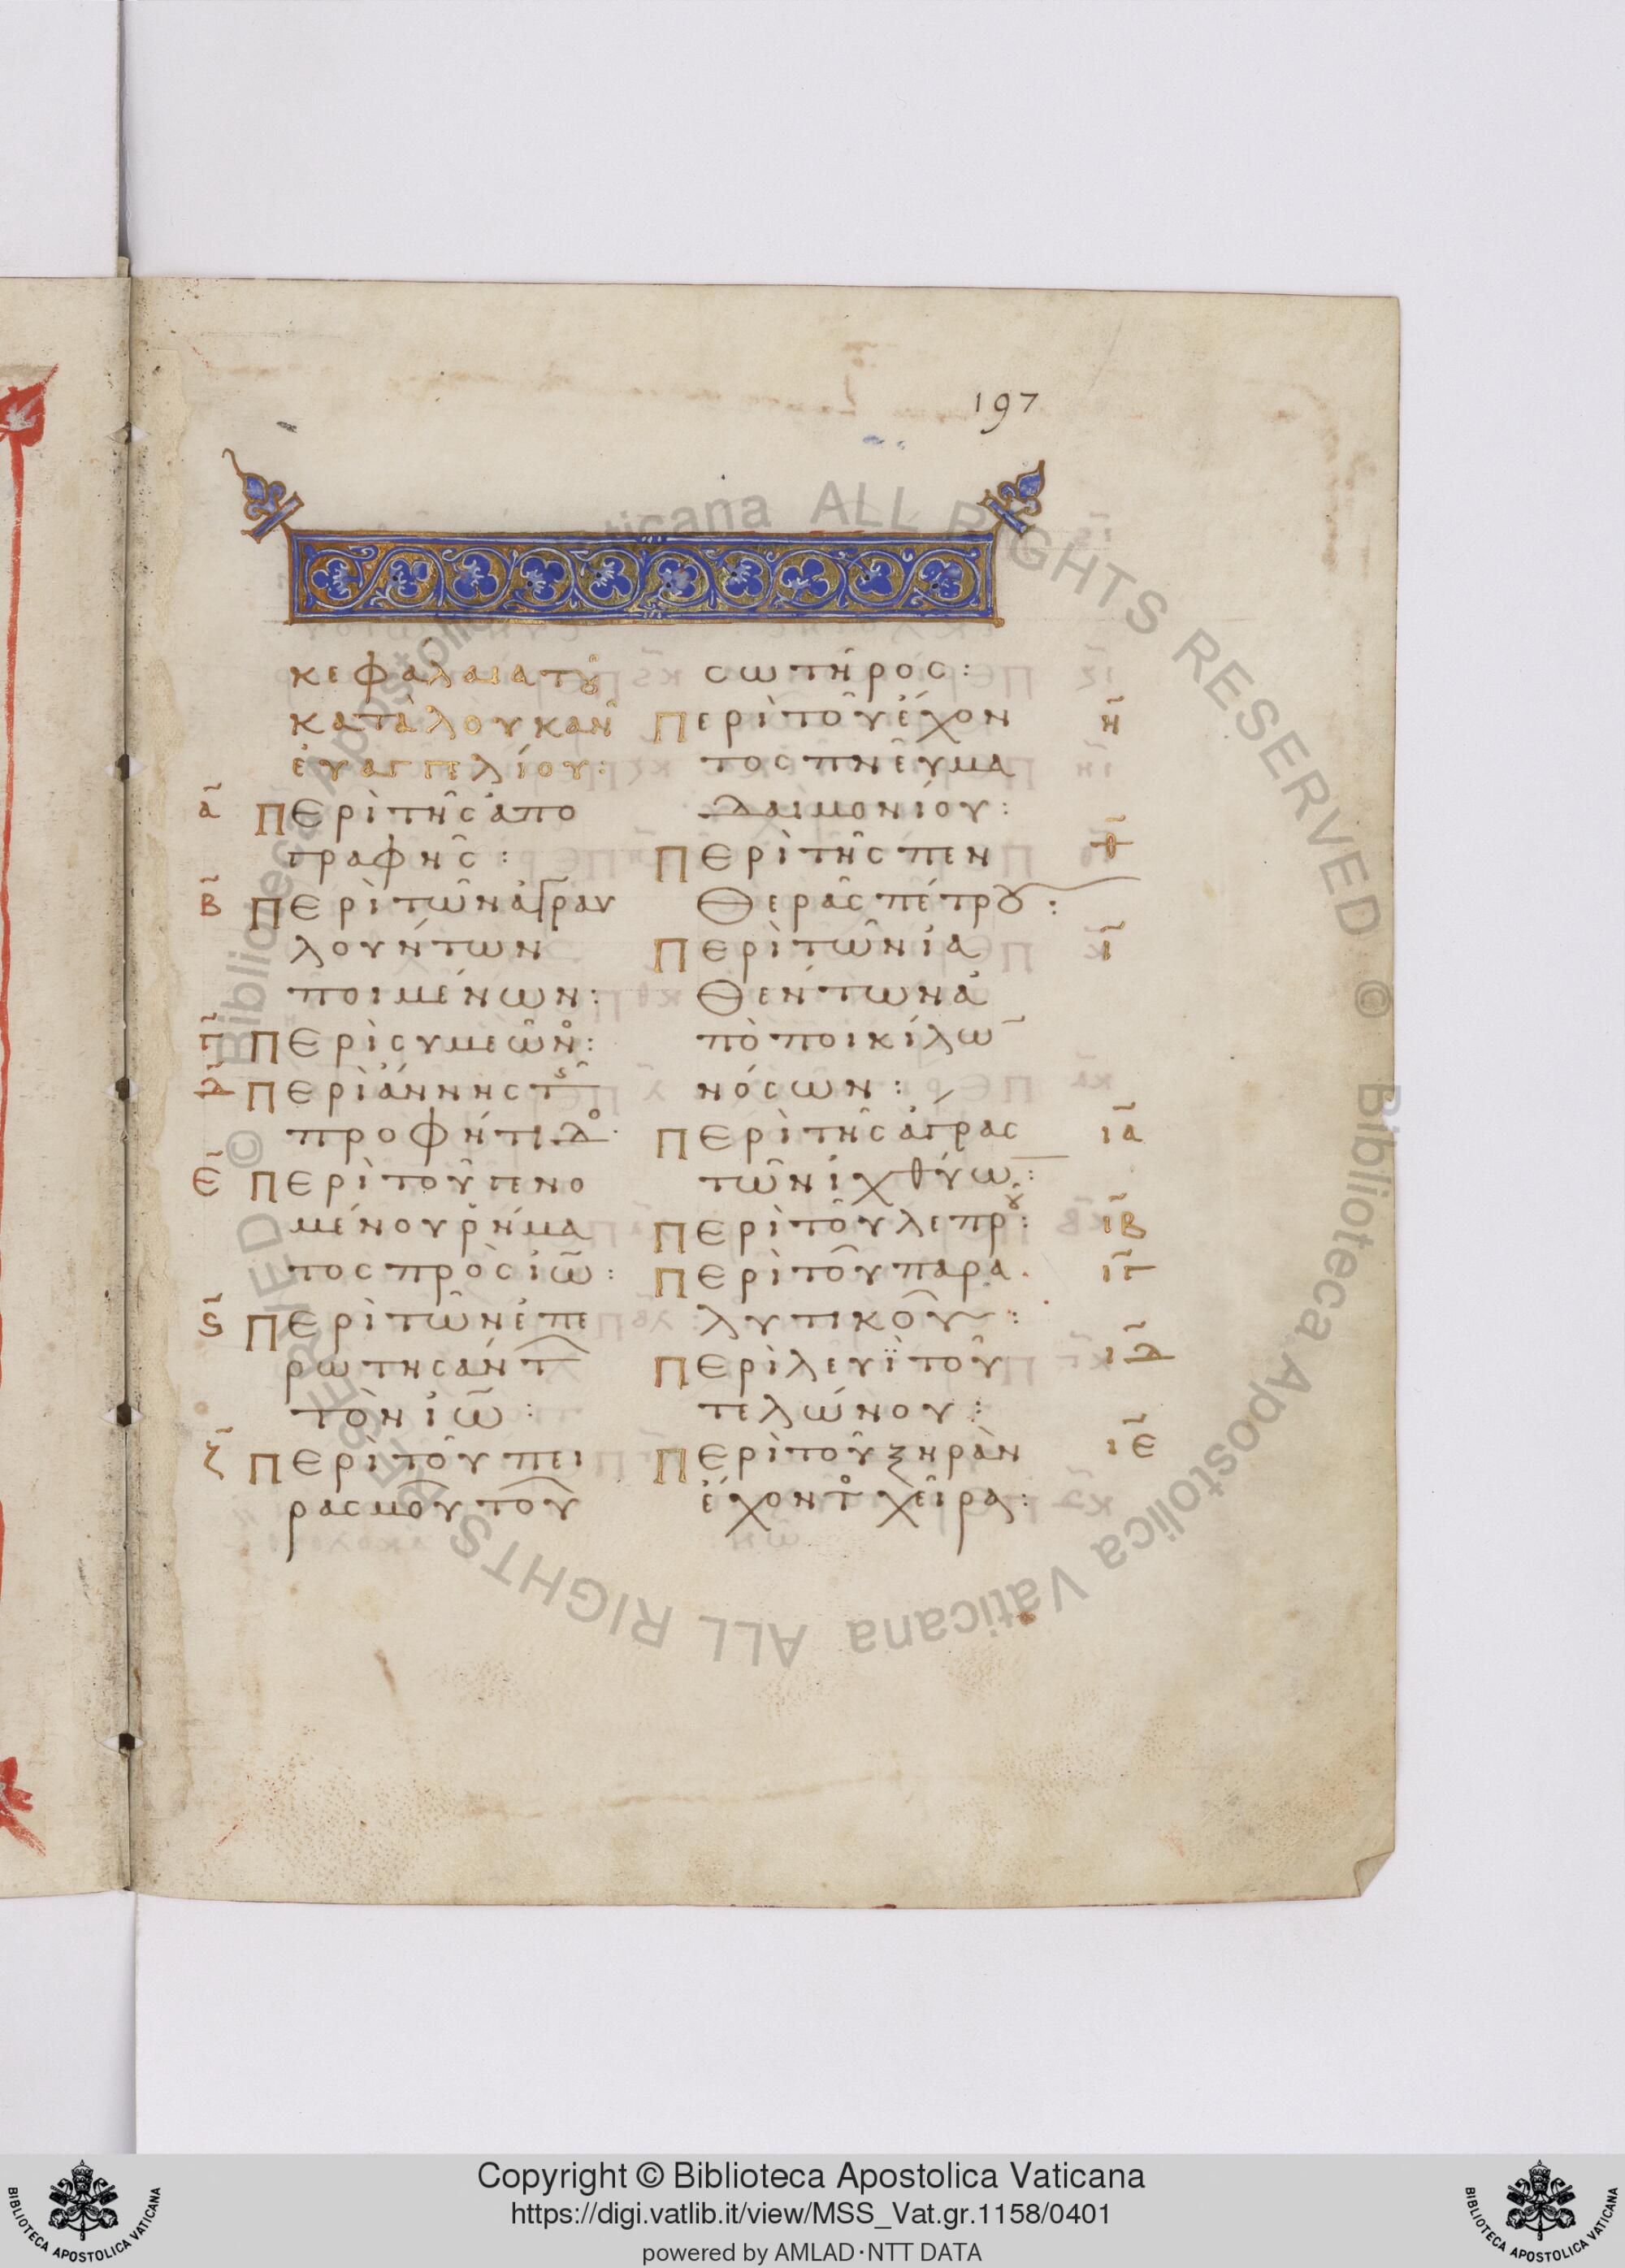 197
κεφάλαια τοῦ
κατὰ λουκᾶν
εὐαγγελίου:
α̃ Περὶ τῆς ἀπο
γραφῆς:
β̃ Περὶ τῶν ἀγραυ
λούντων
ποιμένων:
γ̃ Περὶ συμεών:
δ̃ Περὶ ἄννης τ
προφήτιδο
ε̃ Περὶ τοῦ γενο
μένου ῥήμα
τος πρὸς ἰω̃:
ς̃ Περὶ τῶν ἐπε
ρωτησάντ
τὸν ἰω̃:
ζ̃ Περὶ τοῦ πει
ρασμοῦ τοῦ
σωτῆρος:
Περὶ τοῦ ἔχον η̃
τος πνεῦμα
δαιμονίου:
Περὶ τῆς πεν θ̃
θερᾶς πέτρου:
Περὶ τῶν ἰα ι̃
θέντων ἀ
πὸ ποικίλω̅
νόσων:
Περὶ τῆς ἄγρας ια̃
τῶν ἰχθύω̅:
Περὶ τοῦ λεπρου: ιβ̃
Περὶ τοῦ παρα ιγ̃
λυτικοῦ:
Περὶ λευῒ τοῦ ιδ̃
τελώνου:
Περὶ τοῦ ξηρὰν ιε̃
ἔχοντο χεῖρα:
© Biblioteca Apostolica Vaticana ALL RIGHTS RESERVED © Biblioteca Apostolica Vaticana ALL RIGHTS RESERVED
Copyright © Biblioteca Apostolica Vaticana
https://digi.vatlib.it/view/MSS_Vat.gr.1158/0401
powered by AMLAD·NTT DATA
BIBLIOTECA APOSTOLICA VATICANA
BIBLIOTECA APOSTOLICA VATICANA